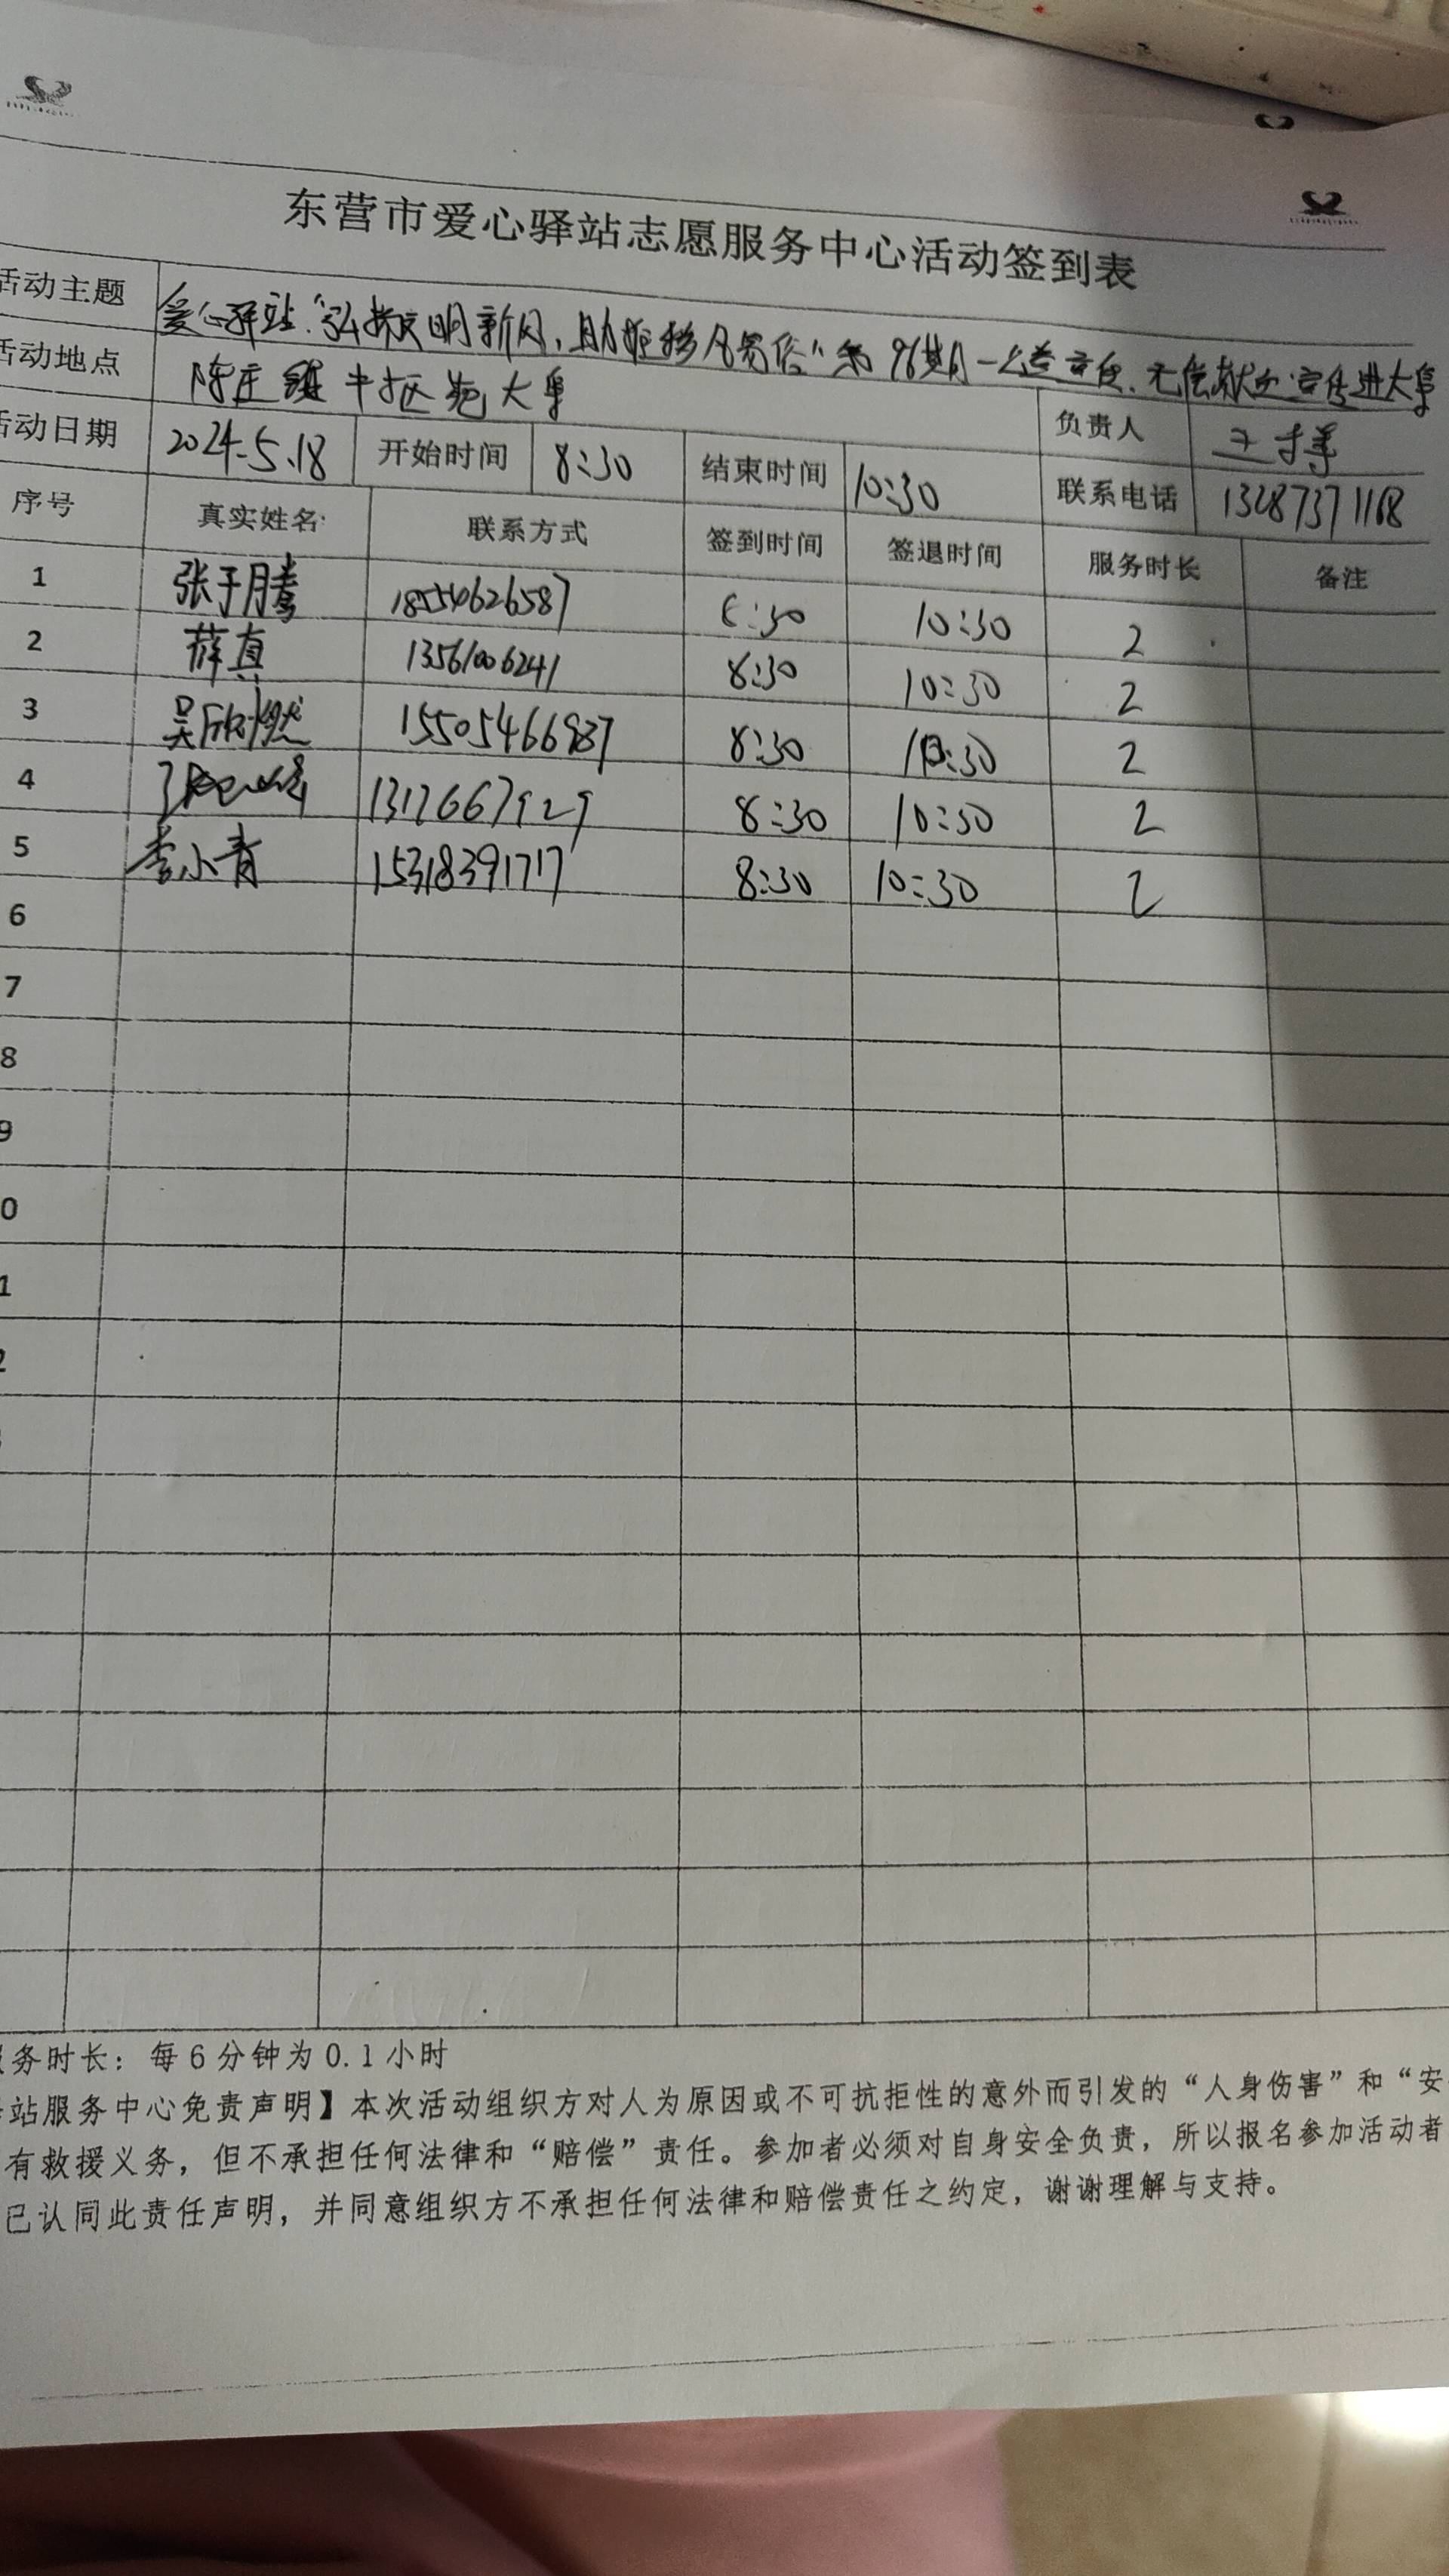 东营市爱心驿站志愿服务中心活动签到表
活动主题 爱心驿站"弘扬文明新风,助推移风易俗"第96期—公益宣传、无偿献血宣传进大集
活动地点 陈庄镇中社区驰大集
负责人
活动日期 2024.5.18 开始时间 8:30 结束时间 10:30 联系电话 13287371168
序号 真实姓名 联系方式 签到时间 签退时间 服务时长 备注
1 张于腾 18554626587 8:30 10:30 2
2 薛真 13561006241 8:30 10:30 2
3 吴欣燃 15505466937 8:30 10:30 2
4 1317667929 8:30 10:30 2
5 李小青 15318391717 8:30 10:30 2
6
7
8
9
0
1
2
服务时长:每6分钟为0.1小时
站服务中心免责声明】本次活动组织方对人为原因或不可抗拒性的意外而引发的“人身伤害”和“安
有救援义务,但不承担任何法律和“赔偿”责任。参加者必须对自身安全负责,所以报名参加活动者
已认同此责任声明,并同意组织方不承担任何法律和赔偿责任之约定,谢谢理解与支持。